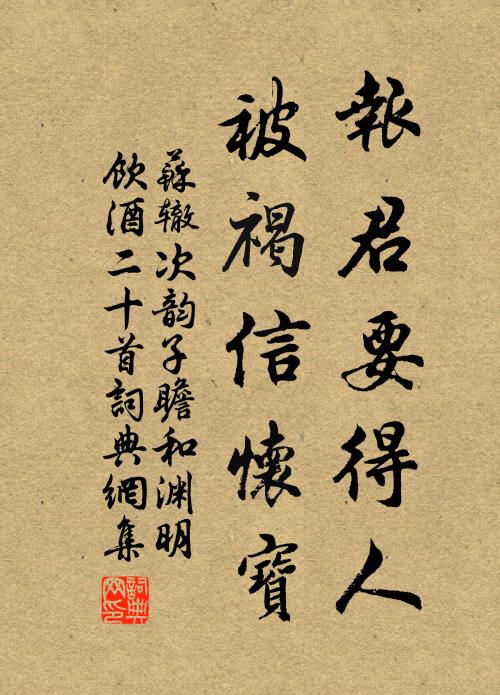 報君要得人
被褐信懷寶
蘇辙次韵子瞻和渊明
飲酒二十首詞典網集
詞典网印